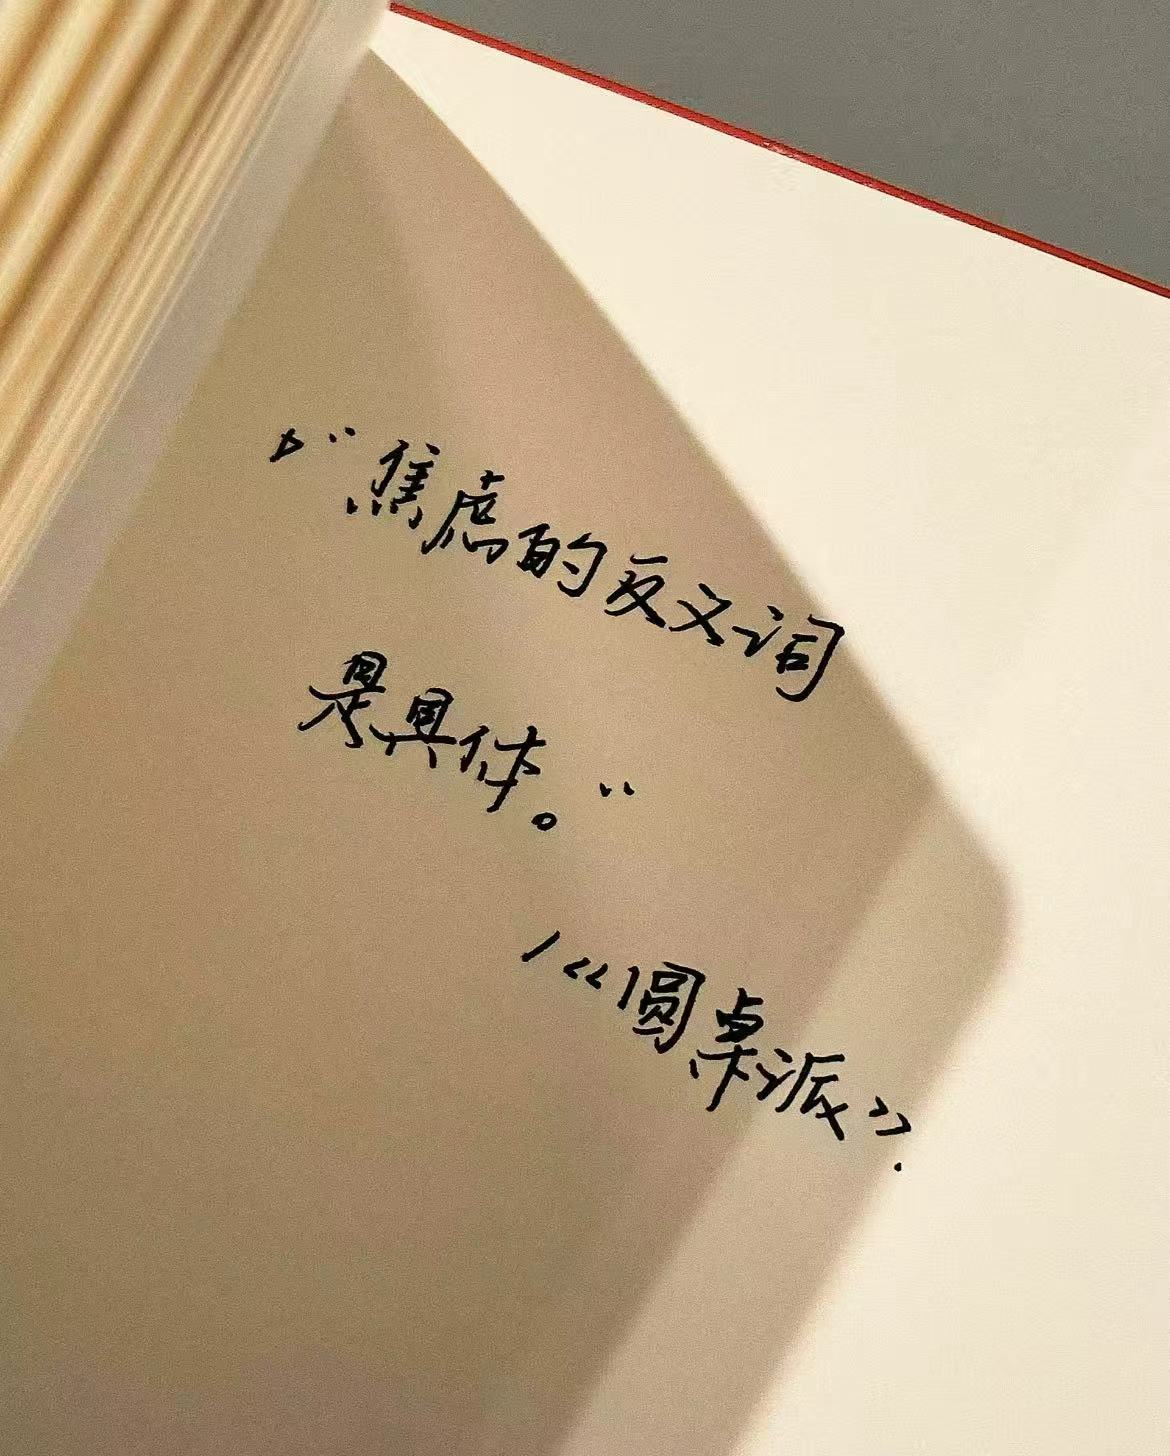 ▷“焦虑的反义词
是具体。”
/《圆桌派》.